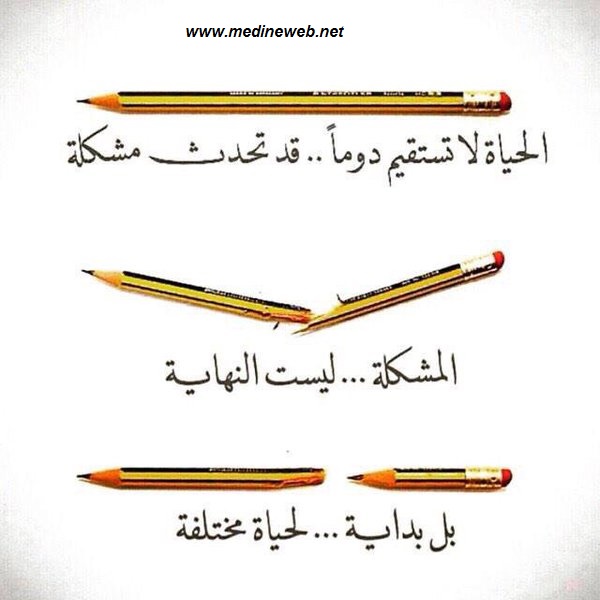 www.medineweb.net
الحياة لا تستقيم دوماً .. قد تحدث مشكلة
المشكلة ... ليست النهاية
بل بداية ... لحياة مختلفة